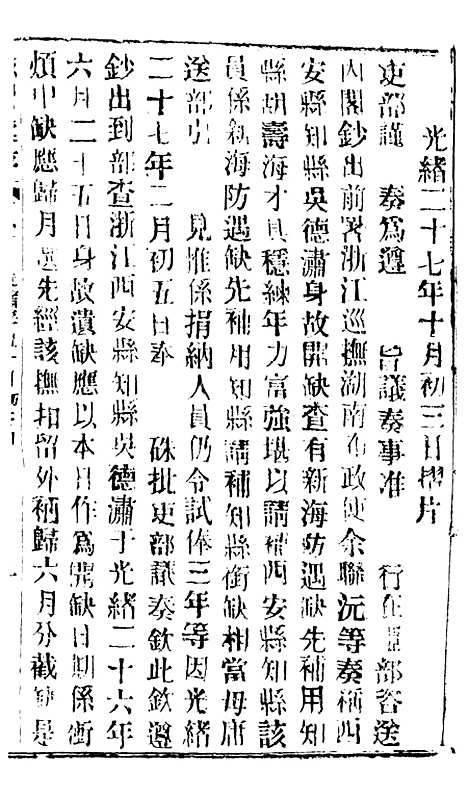 光緒二十七年十月初三日摺片
吏部謹 奏爲遵 旨議奏事准 行在吏部咨送
內閣鈔出前署浙江巡撫湖南布政使余聯沅等奏稱西
安縣知縣吳德潚身故開缺查有新海防遇缺先補用知
縣胡壽海才具穩練年力富強堪以請補西安縣知縣該
員係新海防遇缺先補用知縣請補知縣銜缺相當毋庸
送部引 見惟係捐納人員仍令試俸三年等因光緒
二十七年二月初五日奉 硃批吏部議奏欽此欽遵
鈔出到部查浙江西安縣知縣吳德潚于光緒二十六年
六月二十五日身故遺缺應以本日作爲開缺日期係衝
煩中缺應歸月選先經該撫扣留外補歸六月分截缺是